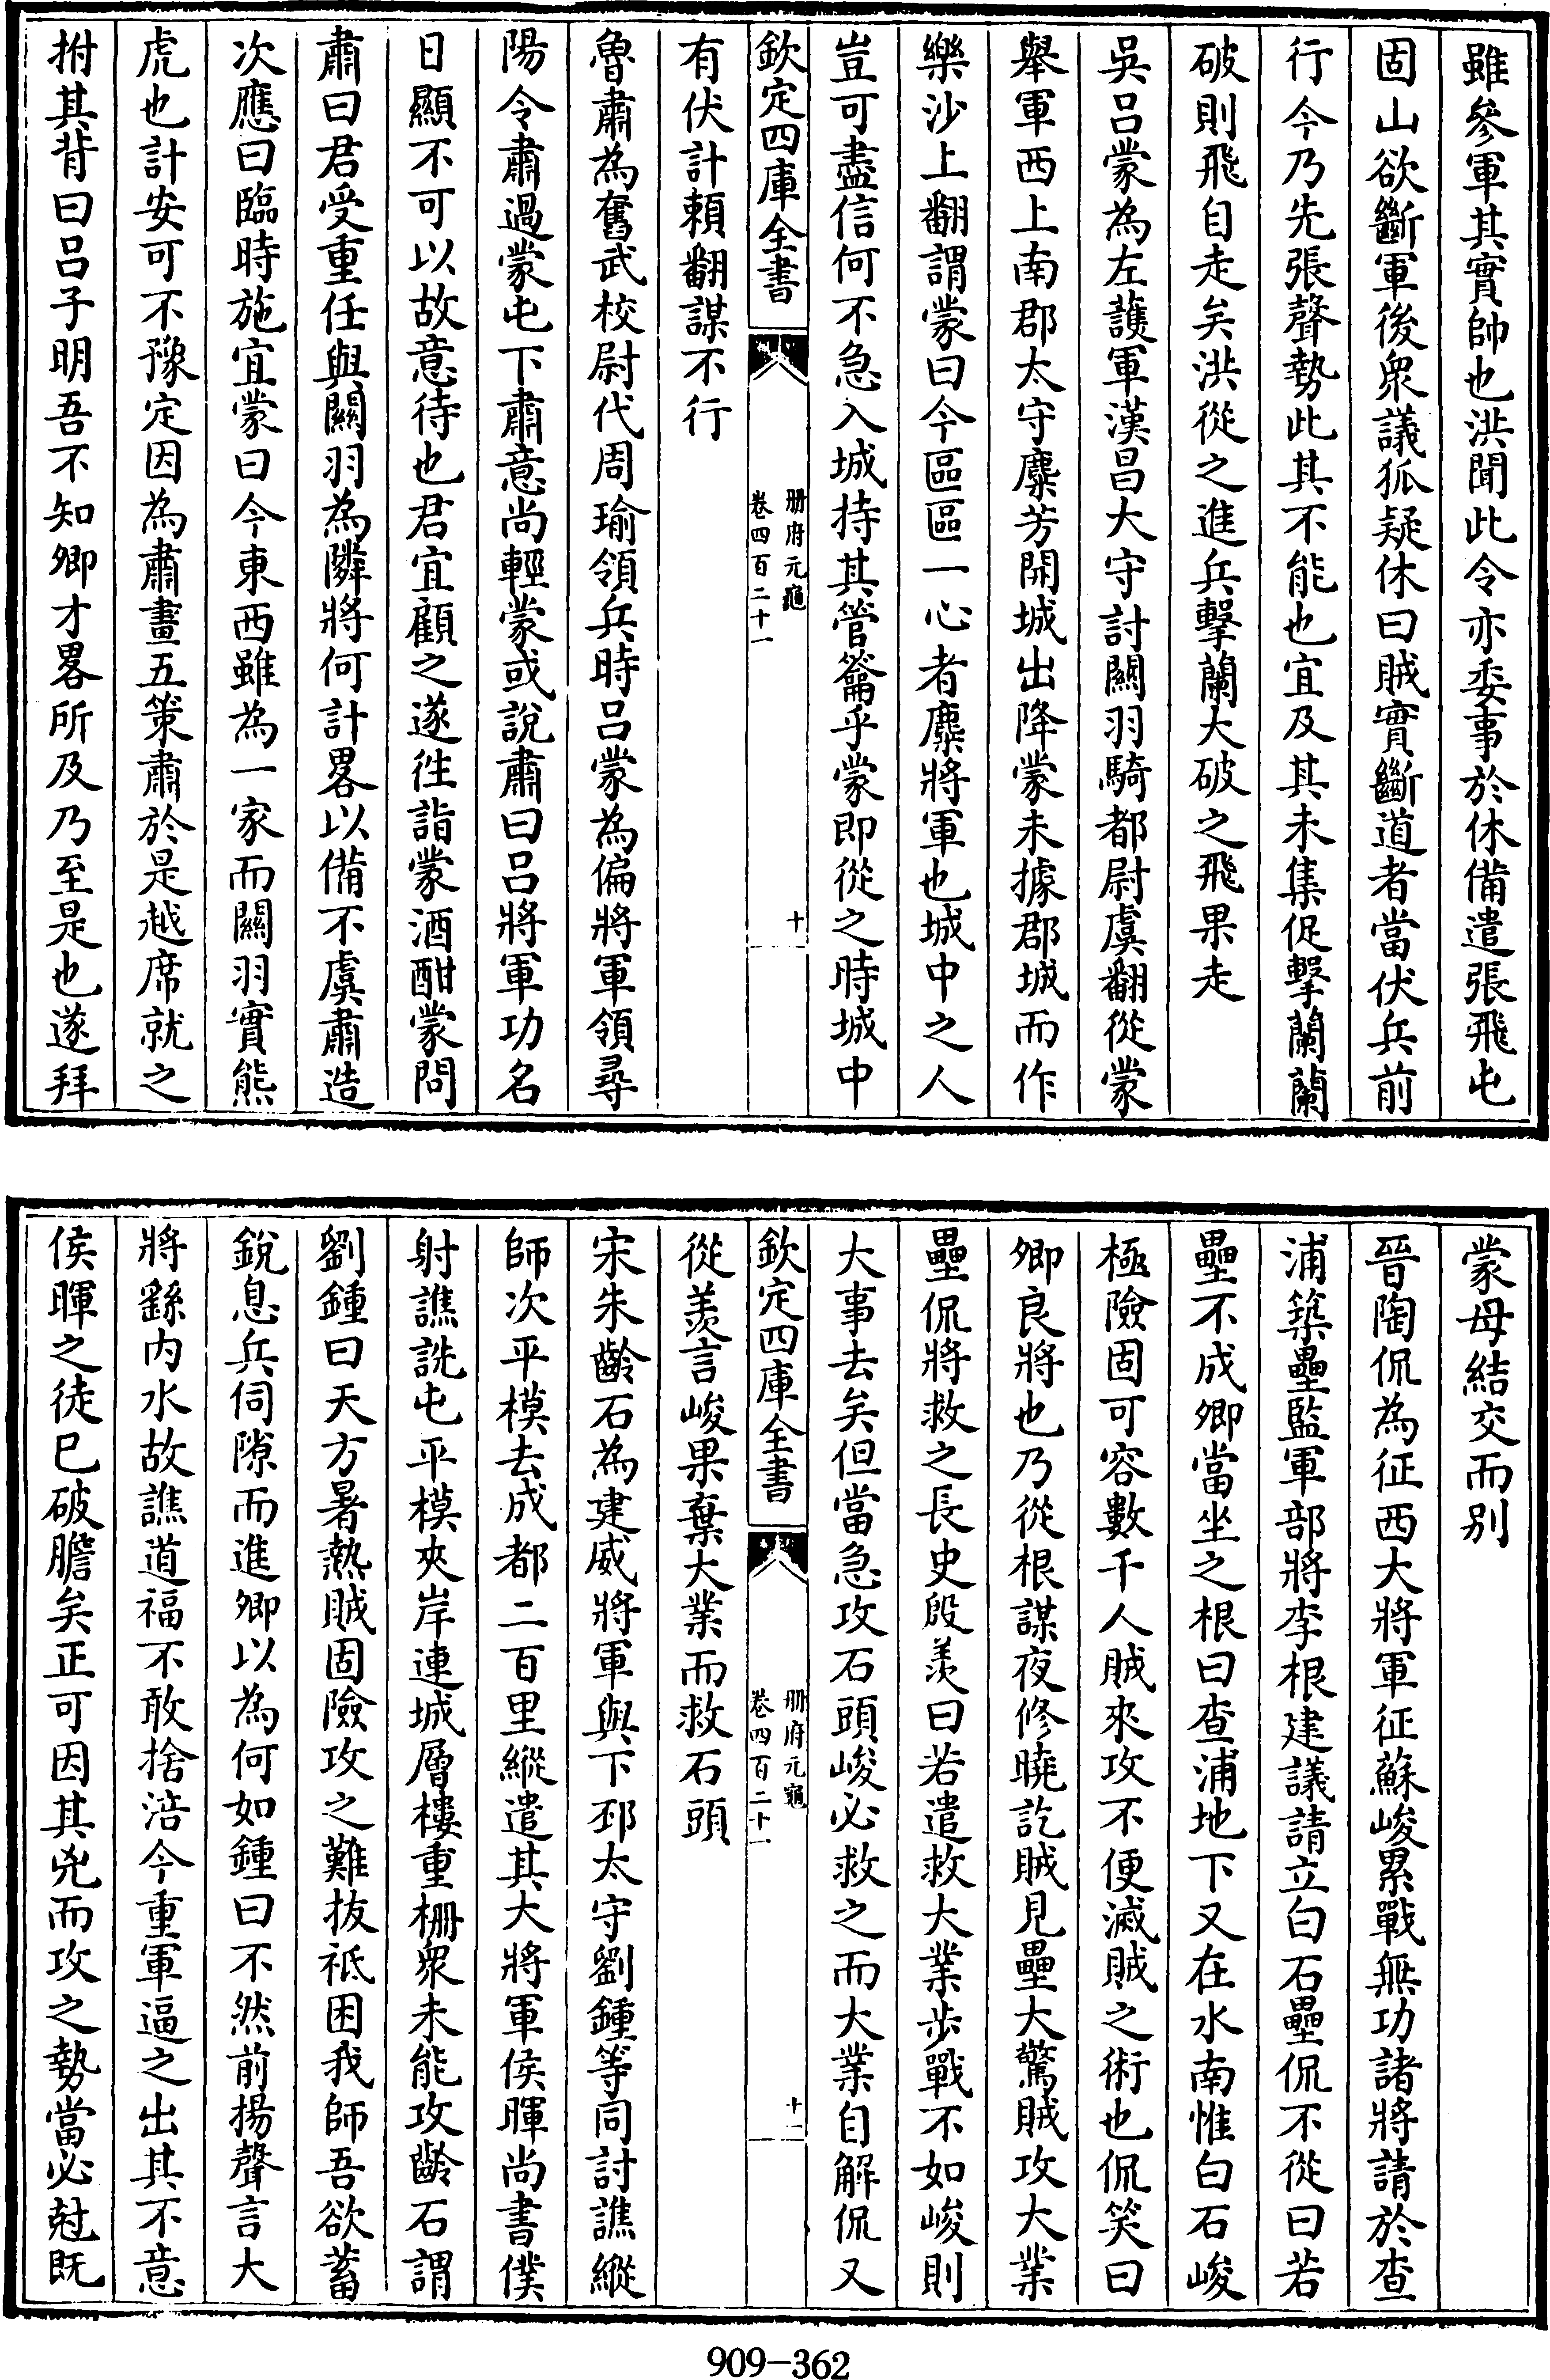 雖參軍其實帥也洪聞此令亦委事於休備遣張飛屯
固山欲斷軍後衆議狐疑休曰賊實斷道者當伏兵前
行今乃先張聲勢此其不能也宜及其未集促擊蘭蘭
破則飛自走矣洪從之進兵擊蘭大破之飛果走
吳呂蒙為左護軍漢昌大守討關羽騎都尉虞翻從蒙
舉軍西上南郡太守麋芳開城出降蒙未據郡城而作
樂沙上翻謂蒙曰今區區一心者麋將軍也城中之人
豈可盡信何不急入城持其管籥乎蒙即從之時城中
欽定四庫全書
冊府元龜
卷四百二十一
十
有伏計賴翻謀不行
魯肅為奮武校尉代周瑜領兵時呂蒙為偏將軍領尋
陽令肅過蒙屯下肅意尚輕蒙或說肅曰呂將軍功名
日顯不可以故意待也君宜顧之遂往詣蒙酒酣蒙問
肅曰君受重任與關羽為隣將何計畧以備不虞肅造
次應曰臨時施宜蒙曰今東西雖為一家而關羽實熊
虎也計安可不豫定因為肅畫五策肅於是越席就之
拊其背曰呂子明吾不知卿才畧所及乃至是也遂拜
蒙母結交而別
晉陶侃為征西大將軍征蘇峻累戰無功諸將請於查
浦築壘監軍部將李根建議請立白石壘侃不從曰若
壘不成卿當坐之根曰查浦地下又在水南惟白石峻
極險固可容數千人賊來攻不便滅賊之術也侃笑曰
卿良將也乃從根謀夜修曉訖賊見壘大驚賊攻大業
壘侃將救之長史殷羨曰若遣救大業步戰不如峻則
大事去矣但當急攻石頭峻必救之而大業自解侃又
欽定四庫全書
冊府元龜
卷四百二十一
十一
從羨言峻果棄大業而救石頭
宋朱齡石為建威將軍與下邳太守劉鍾等同討譙縱
師次平模去成都二百里縱遣其大將軍侯暉尚書僕
射譙詵屯平模夾岸連城層樓重柵衆未能攻齡石謂
劉鍾曰天方暑熱賊固險攻之難拔祗困我師吾欲蓄
銳息兵伺隙而進卿以為何如鍾曰不然前揚聲言大
將繇內水故譙道福不敢捨涪今重軍逼之出其不意
侯暉之徒巳破膽矣正可因其兇而攻之勢當必尅既
909-362